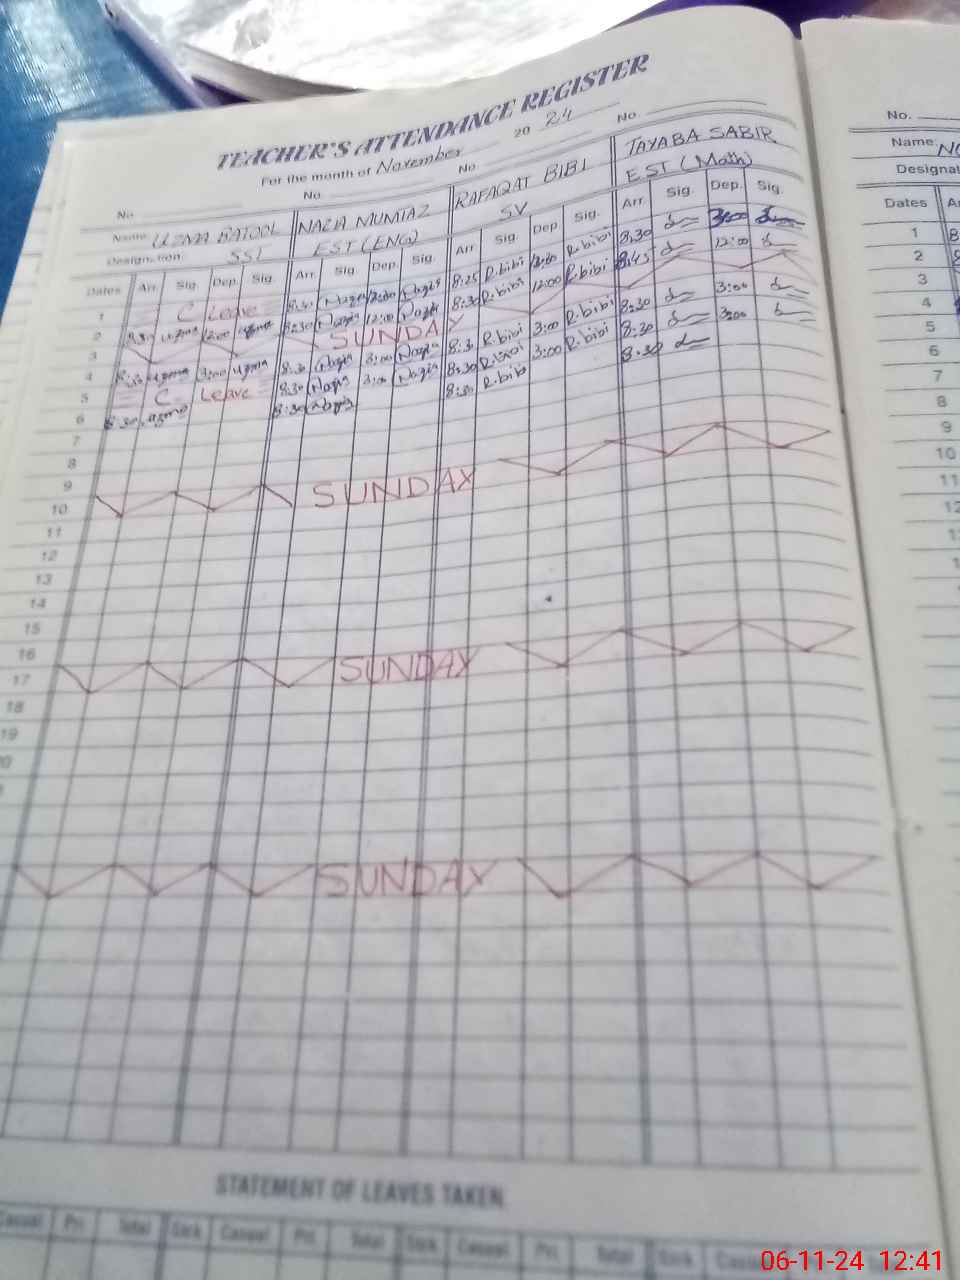 TEACHER'S ATTENDANCE REGISTER
For the month of November 2024
No. No. No. No.
Name: UZMA BATOOL NAZIA MUMTAZ RAFAQAT BIBI TAYABA SABIR
Designation: SST EST (ENG) SV EST (Math)
Dates Arr. Sig. Dep. Sig. Arr. Sig. Dep. Sig. Arr. Sig. Dep. Sig. Arr. Sig. Dep. Sig.
1 C Leave Nazia 12:00 Nazia 8:25 R.bibi R.bibi 8:30
2 8:30 uzma 12:00 uzma 8:30 Nazia 12:00 Nazia 8:30 R.bibi 12:00 R.bibi 8:45 12:00
3 SUNDAY
4 8:30 uzma 3:00 uzma 8:30 Nazia 3:00 Nazia 8:30 R.bibi 3:00 R.bibi 8:30 3:00
5 C Leave 8:30 Nazia 3:00 Nazia 8:30 R.bibi 3:00 R.bibi 8:30 3:00
6 8:30 uzma 8:30 Nazia 8:30 R.bibi 8:30
7
8
9
10 SUNDAY
11
12
13
14
15
16
17 SUNDAY
18
19
SUNDAY
STATEMENT OF LEAVES TAKEN
Casual Pri. Total Sick Casual Pri. Total Sick Casual Pri. Total Sick
No.
Name:
Dates
1
2
3
4
5
6
7
8
9
10
11
06-11-24 12:41